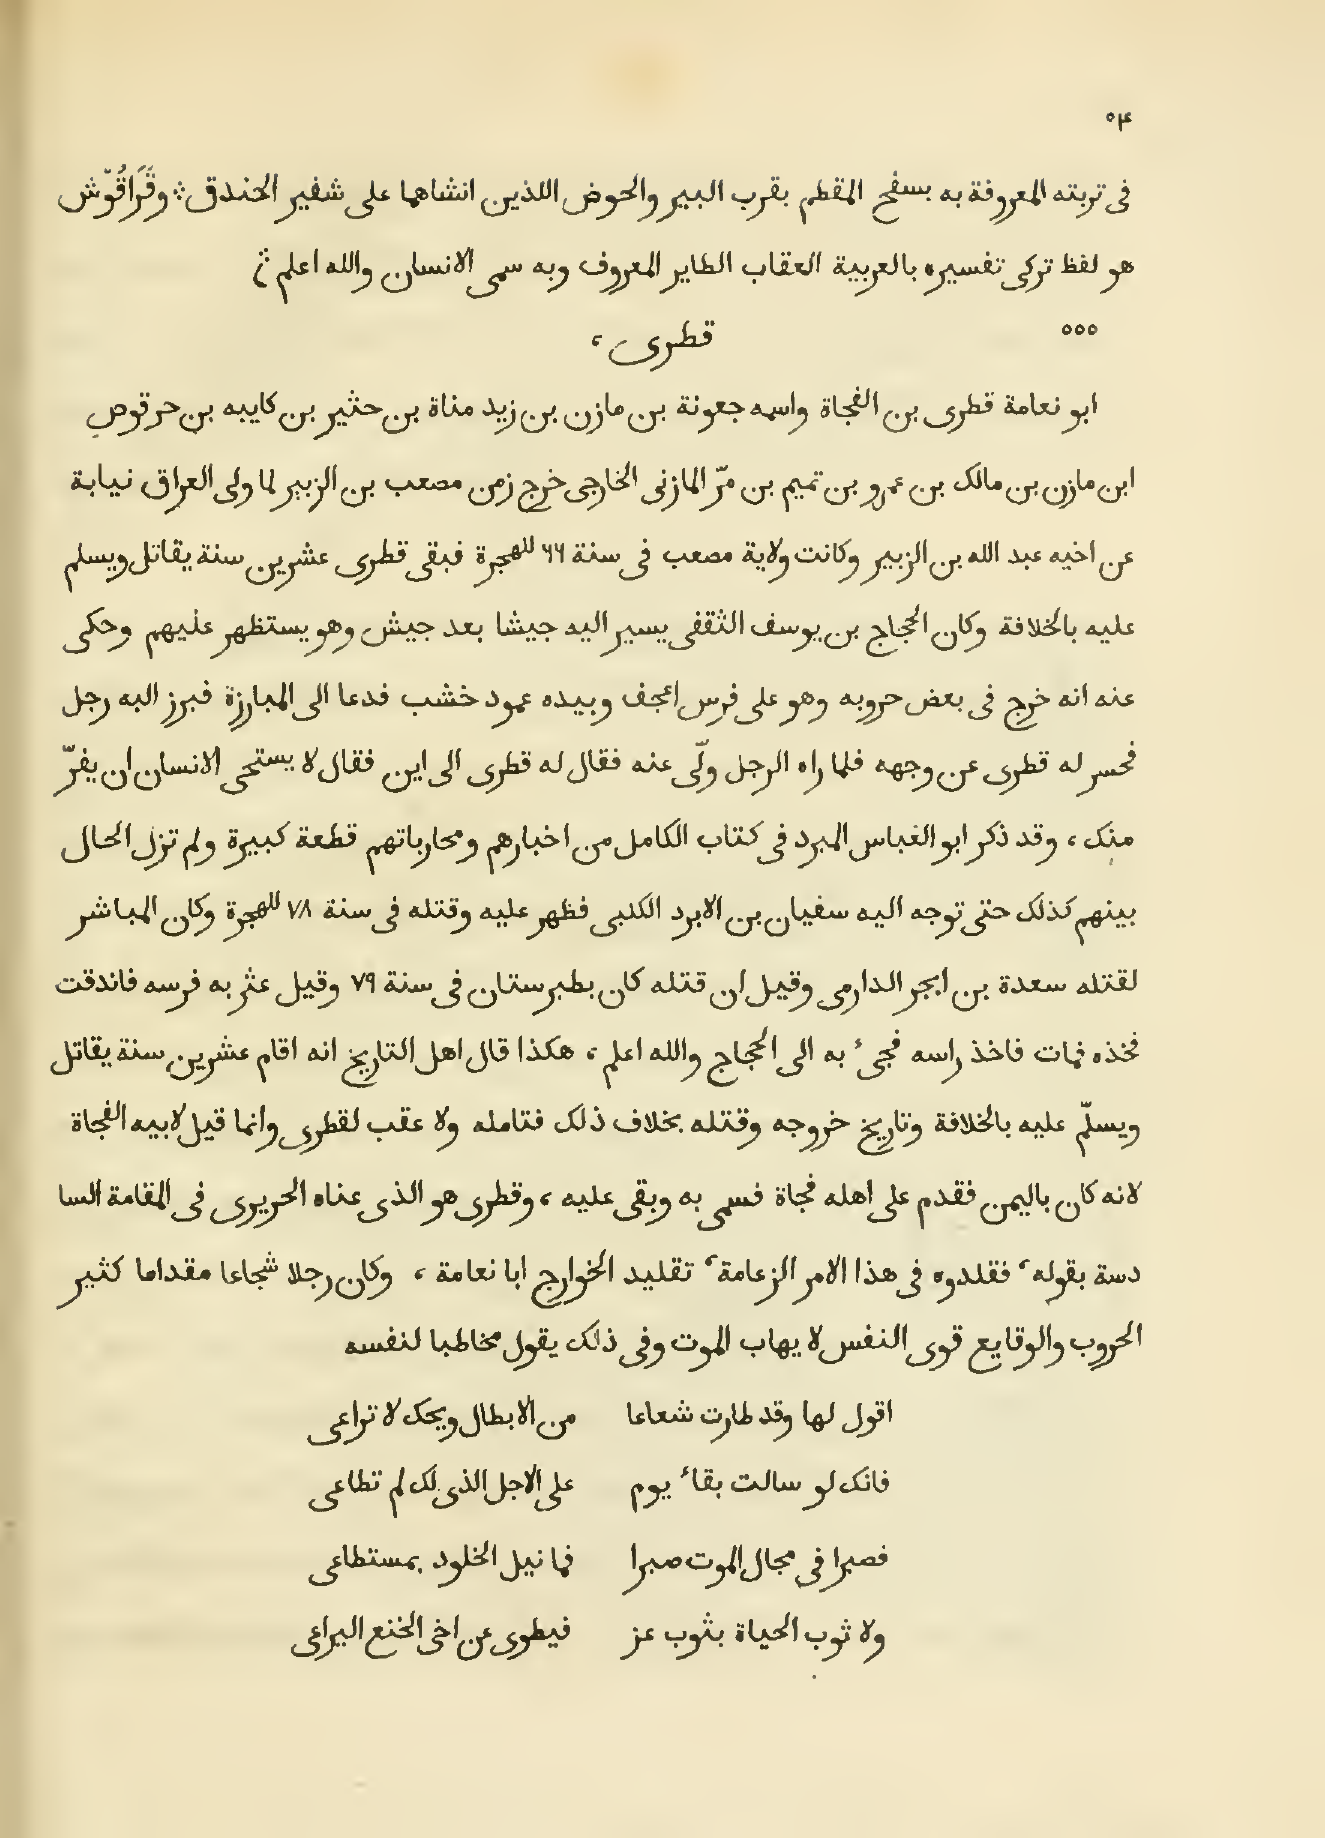 ٥٤
فى تربته المعروفة به بسفح المقطم بقرب البير والحوض اللذين انشاهما على شفير الخندق ؞ وقَرَاقُوّش
هو لفظ تركى تفسيره بالعربية العقاب الطاير المعروف وبه سمى الانسان والله اعلم ؞
٥٥٥
قطرى ،
ابو نعامة قطرى بن الفجاة واسمه جعونة بن مازن بن زيد مناة بن حثير بن كابيه بن حرقوص
ابن مازن بن مالك بن عمرو بن تميم بن مرّ المازنى الخارجى خرج زمن مصعب بن الزبير لما ولى العراق نيابة
عن اخيه عبد الله بن الزبير وكانت ولاية مصعب فى سنة ٦٦ للهجرة فبقى قطرى عشرين سنة يقاتل ويسلم
عليه بالخلافة وكان الحجاج بن يوسف الثقفى يسير اليه جيشا بعد جيش وهو يستظهر عليهم وحكى
عنه انه خرج فى بعض حروبه وهو على فرس اعجف وبيده عمود خشب فدعا الى المبارزة فبرز اليه رجل
فحسر له قطرى عن وجهه فلما راه الرجل ولّى عنه فقال له قطرى الى اين فقال لا يستحى الانسان ان يفرّ
منك ، وقد ذكر ابو العباس المبرد فى كتاب الكامل من اخبارهم ومحارباتهم قطعة كبيرة ولم تزل الحال
بينهم كذلك حتى توجه اليه سفيان بن الابرد الكلبى فظهر عليه وقتله فى سنة ٧٨ للهجرة وكان المباشر
لقتله سعدة بن ابجر الدارمى وقيل ان قتله كان بطبرستان فى سنة ٧٩ وقيل عثر به فرسه فاندقت
فخذه فمات فاخذ راسه فجىء به الى الحجاج والله اعلم ، هكذا قال اهل التاريخ انه اقام عشرين سنة يقاتل
ويسلّم عليه بالخلافة وتاريخ خروجه وقتله بخلاف ذلك فتامله ولا عقب لقطرى وانما قيل لابيه الفجاة
لانه كان باليمن فقدم على اهله فجاة فسمى به وبقى عليه ، وقطرى هو الذى عناه الحريرى فى المقامة السا
دسة بقوله ، فقلدوه فى هذا الامر الزعامة ، تقليد الخوارج ابا نعامة ، وكان رجلا شجاعا مقداما كثير
الحروب والوقايع قوى النفس لا يهاب الموت وفى ذلك يقول مخاطبا لنفسه
اقول لها وقد طارت شعاعا من الابطال ويحك لا تراعى
فانك لو سالت بقاء يوم على الاجل الذى لك لم تطاعى
فصبرا فى مجال الموت صبرا فما نيل الخلود بمستطاعى
ولا ثوب الحياة بثوب عز فيطوى عن اخى الخنع اليراعى